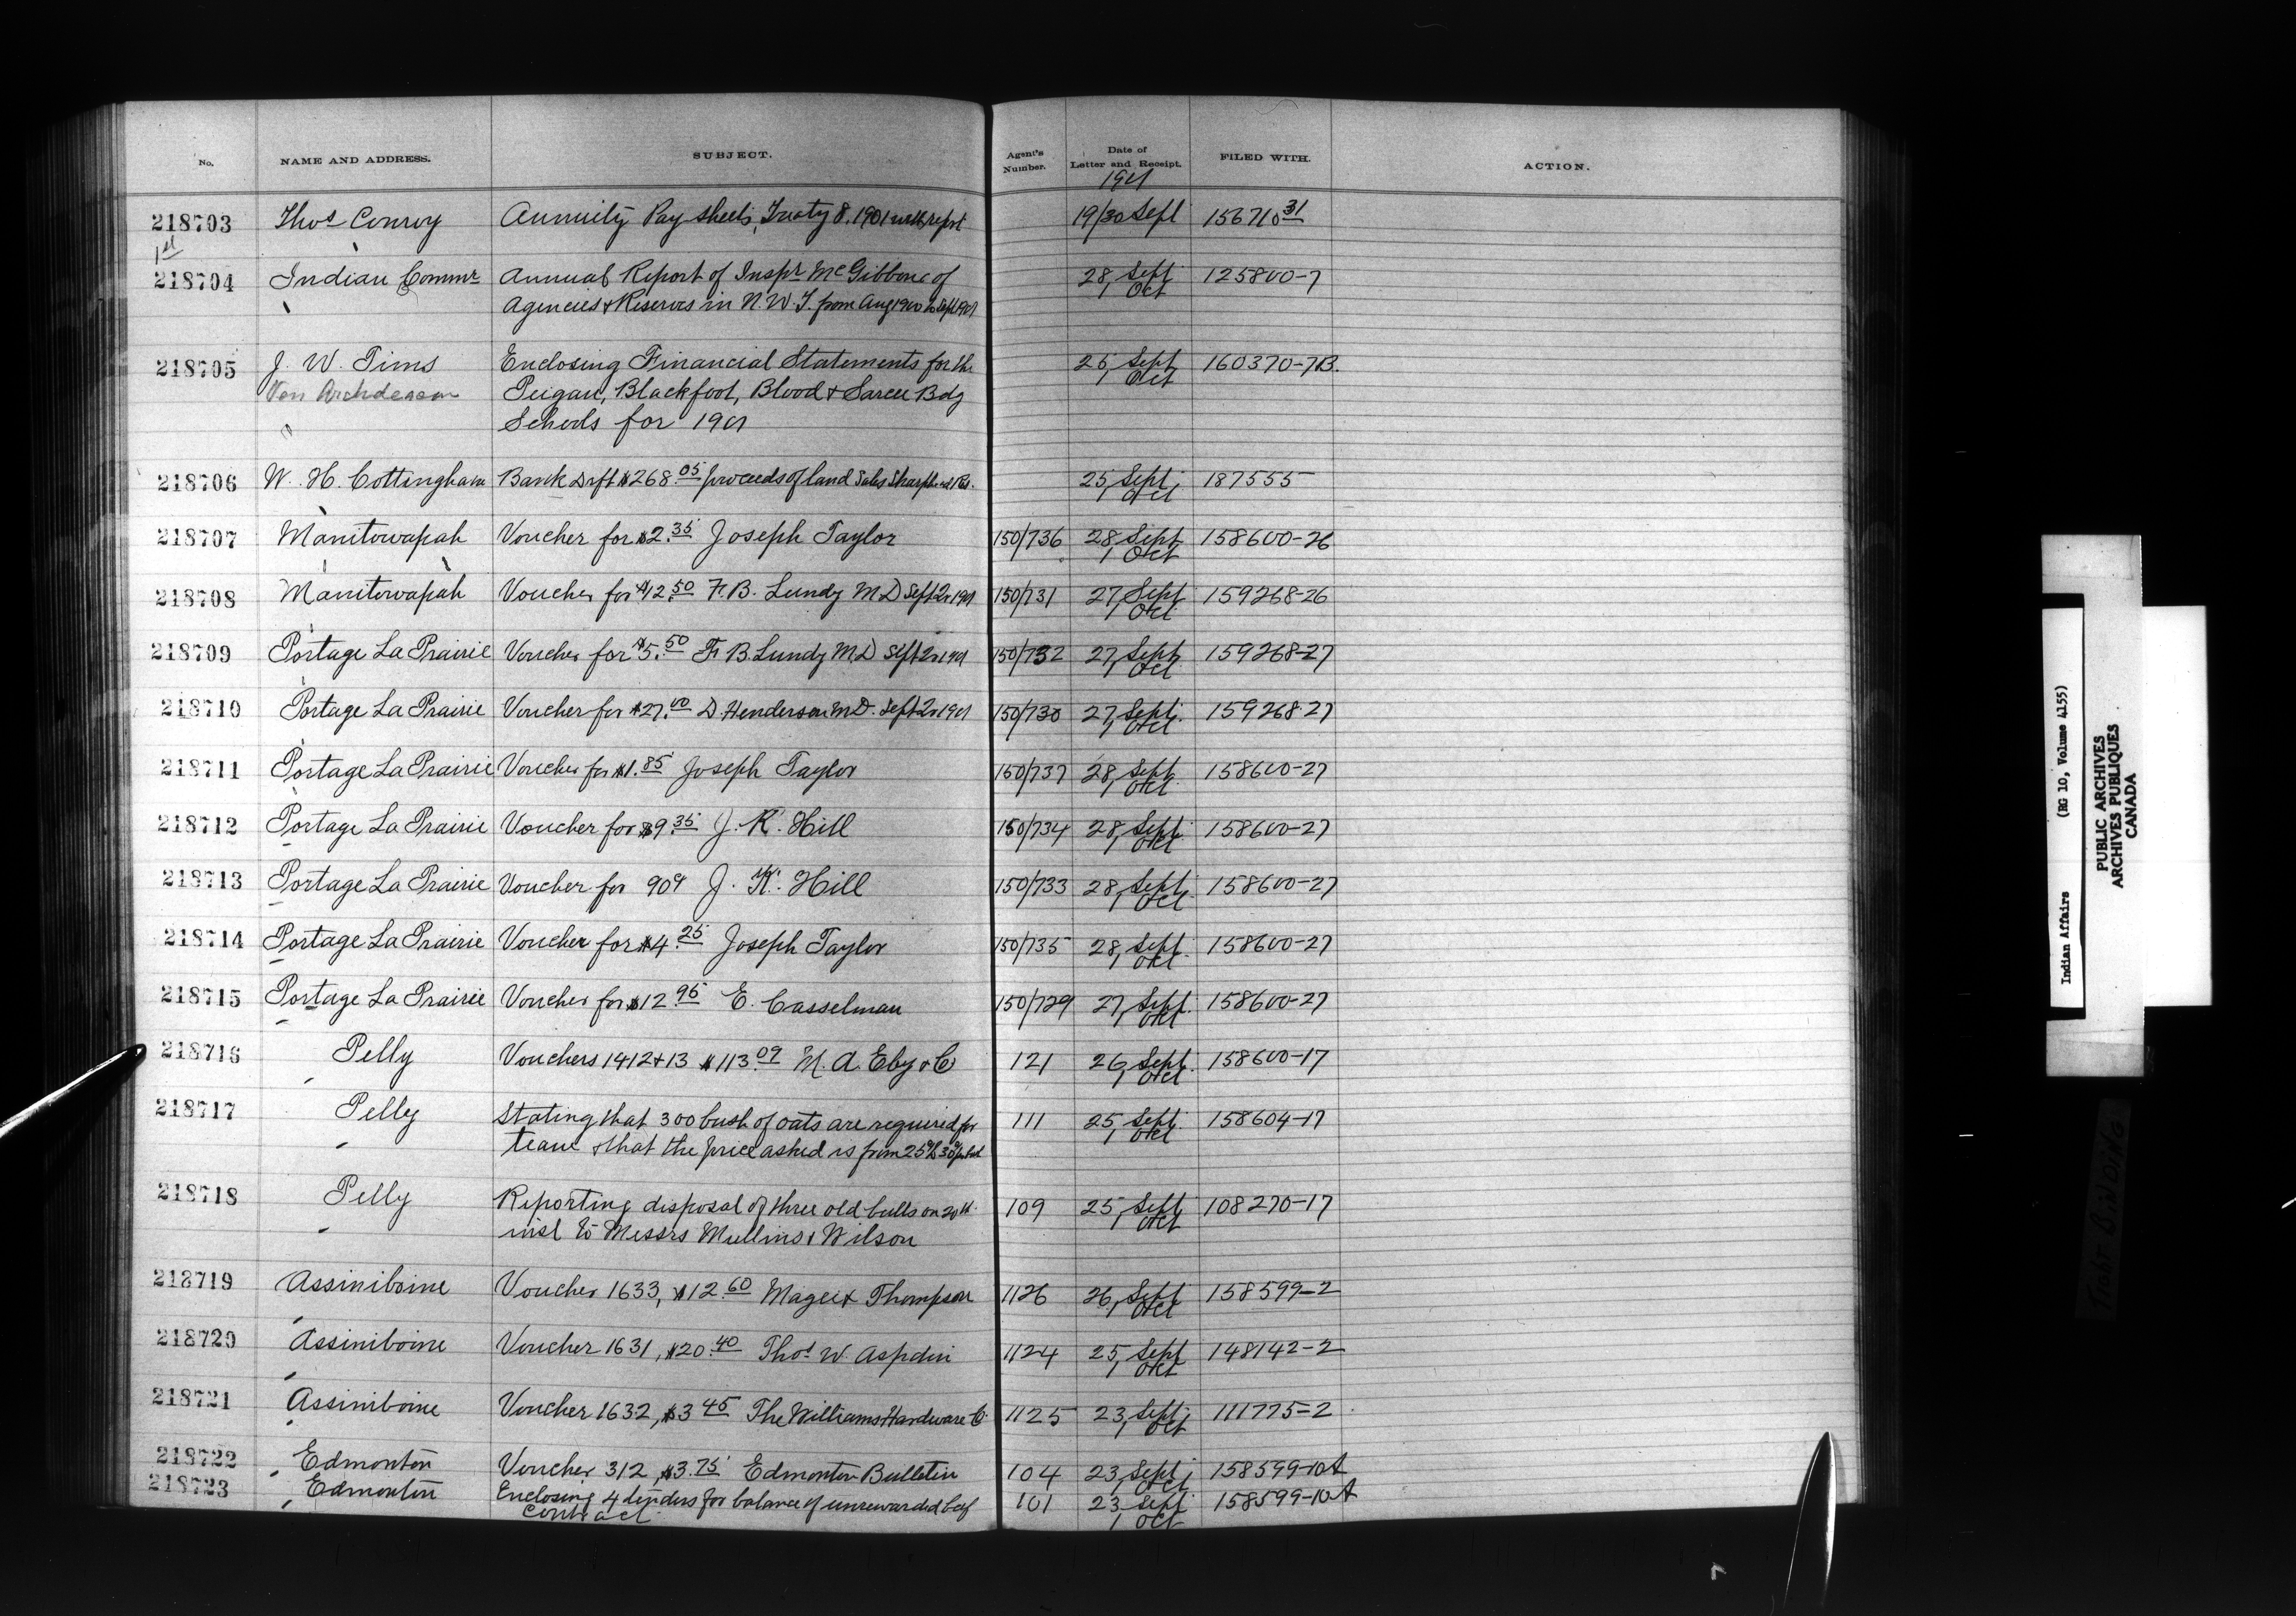 No. NAME AND ADDRESS. SUBJECT. Agent's Number. Date of Letter and Receipt. FILED WITH. ACTION.
1901
218703 Thos Conroy Annuity Pay sheets, Treaty 8. 1901 with report 19/30 Sept 156710 31
1st
218704 Indian Commr Annual Report of Inspr McGibbon of 28 Sept 125800-7
Agencies & Reserves in N.W.T. from Aug 1900 to Sept 1901 1 Oct
218705 J. W. Tims Enclosing Financial Statements for the 25 Sept 160370-7B.
Ven Archdeacon Peigan, Blackfoot, Blood & Sarcee Bdg 1 Oct
Schools for 1901
218706 W. H. Cottingham Bank Drft $268.05 proceeds of land Sales Sharphead Res. 25 Sept 187555
1 Oct
218707 Manitowapah Voucher for $2.35 Joseph Taylor 150/736 28 Sept 158600-26
1 Oct
218708 Manitowapah Voucher for $12.50 F. B. Lundy M D Sept 2r 1901 150/731 27 Sept 159268-26
1 Oct
218709 Portage La Prairie Voucher for $5.50 F B. Lundy M.D Sept 2r 1901 150/732 27 Sept 159268-27
1 Oct
218710 Portage La Prairie Voucher for $27.00 D. Henderson M.D. Sept 2r 1901 150/730 27 Sept. 159268-27
1 Oct
218711 Portage La Prairie Voucher for $1.85 Joseph Taylor 150/737 28 Sept. 158600-27
1 Oct
218712 Portage La Prairie Voucher for $9.35 J. K. Hill 150/734 28 Sept. 158600-27
1 Oct
218713 Portage La Prairie Voucher for 90¢ J. K. Hill 150/733 28 Sept. 158600-27
1 Oct
218714 Portage La Prairie Voucher for $4.25 Joseph Taylor 150/735 28 Sept. 158600-27
1 Oct
218715 Portage La Prairie Voucher for $12.95 E. Casselman 150/729 27 Sept. 158600-27
1 Oct
218716 Pelly Vouchers 1412 & 13 $113.09 M. A. Eby & Co 121 26 Sept. 158600-17
1 Oct
218717 Pelly Stating that 300 bush of oats are required for 111 25 Sept. 158604-17
team & that the price asked is from 25¢ to 30¢ 1 Oct
218718 Pelly Reporting disposal of three old bulls on 20th 109 25 Sept 108270-17
inst to Messrs Mullins & Wilson 1 Oct
218719 Assiniboine Voucher 1633, $12.60 Magee & Thompson 1126 26 Sept 158599-2
1 Oct
218720 Assiniboine Voucher 1631, $20.40 Thos W. Aspdin 1124 25 Sept 148142-2
1 Oct
218721 Assiniboine Voucher 1632, $3.45 The Williams Hardware Co 1125 23 Sept 111775-2
1 Oct
218722 Edmonton Voucher 312, $3.75 Edmonton Bulletin 104 23 Sept 158599-10A
1 Oct
218723 Edmonton Enclosing 4 tenders for balance of unrewarded beef 101 23 Sept 158599-10A
contract. 1 Oct
Indian Affairs (RG 10, Volume 4155)
PUBLIC ARCHIVES
ARCHIVES PUBLIQUES
CANADA
TIGHT BINDING